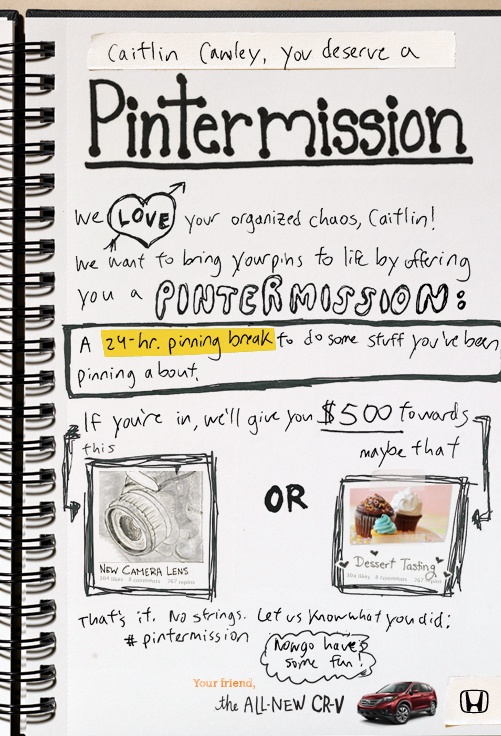 Caitlin Cawley, you deserve a
Pintermission
We LOVE your organized chaos, Caitlin!
We want to bring your pins to life by offering
you a PINTERMISSION:
A 24-hr. pinning break to do some stuff you've been
pinning about.
If you're in, we'll give you $500 towards
this
maybe that
NEW CAMERA LENS
OR
Dessert Tasting
That's it. No strings. Let us know what you did:
#pintermission
Now go have
some fun!
Your friend,
the ALL-NEW CR-V